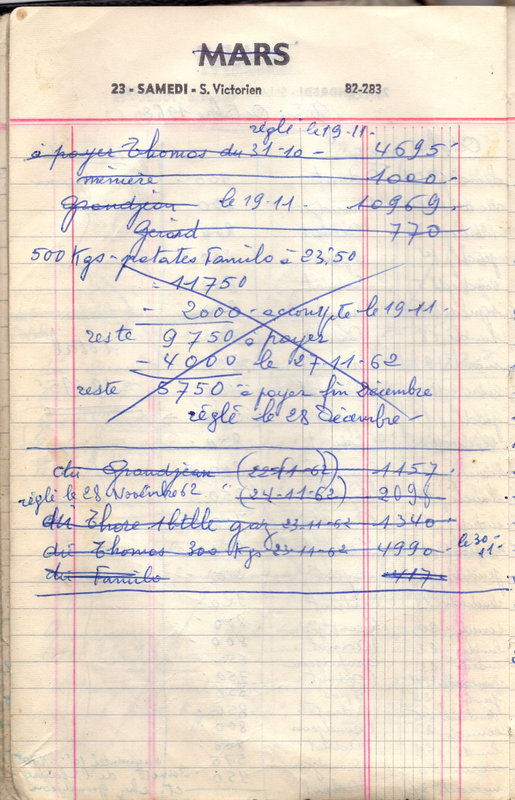 MARS
23 - SAMEDI - S. Victorien 82-283
réglé le 19-11-
à payer Thomas du 31-10 - 4695-
minière 1000-
grandjean le 19-11- 10969-
Gérard 770
500 Kgs - patates Familo à 23,50
= 11750
- 2000 - acompte le 19-11-
reste 9750 à payer
- 4000 le 27-11-62
reste 5750 à payer fin Décembre
réglé le 28 Décembre -
du Grandjean (22-11-62) 1157-
réglé le 28 Novembre 62 " (24-11-62) 2098
dû 1btlle gaz 23-11-62 1340-
dû Thomas 300 Kgs 23-11-62 4990- le 30-11-
dû Familo 417-